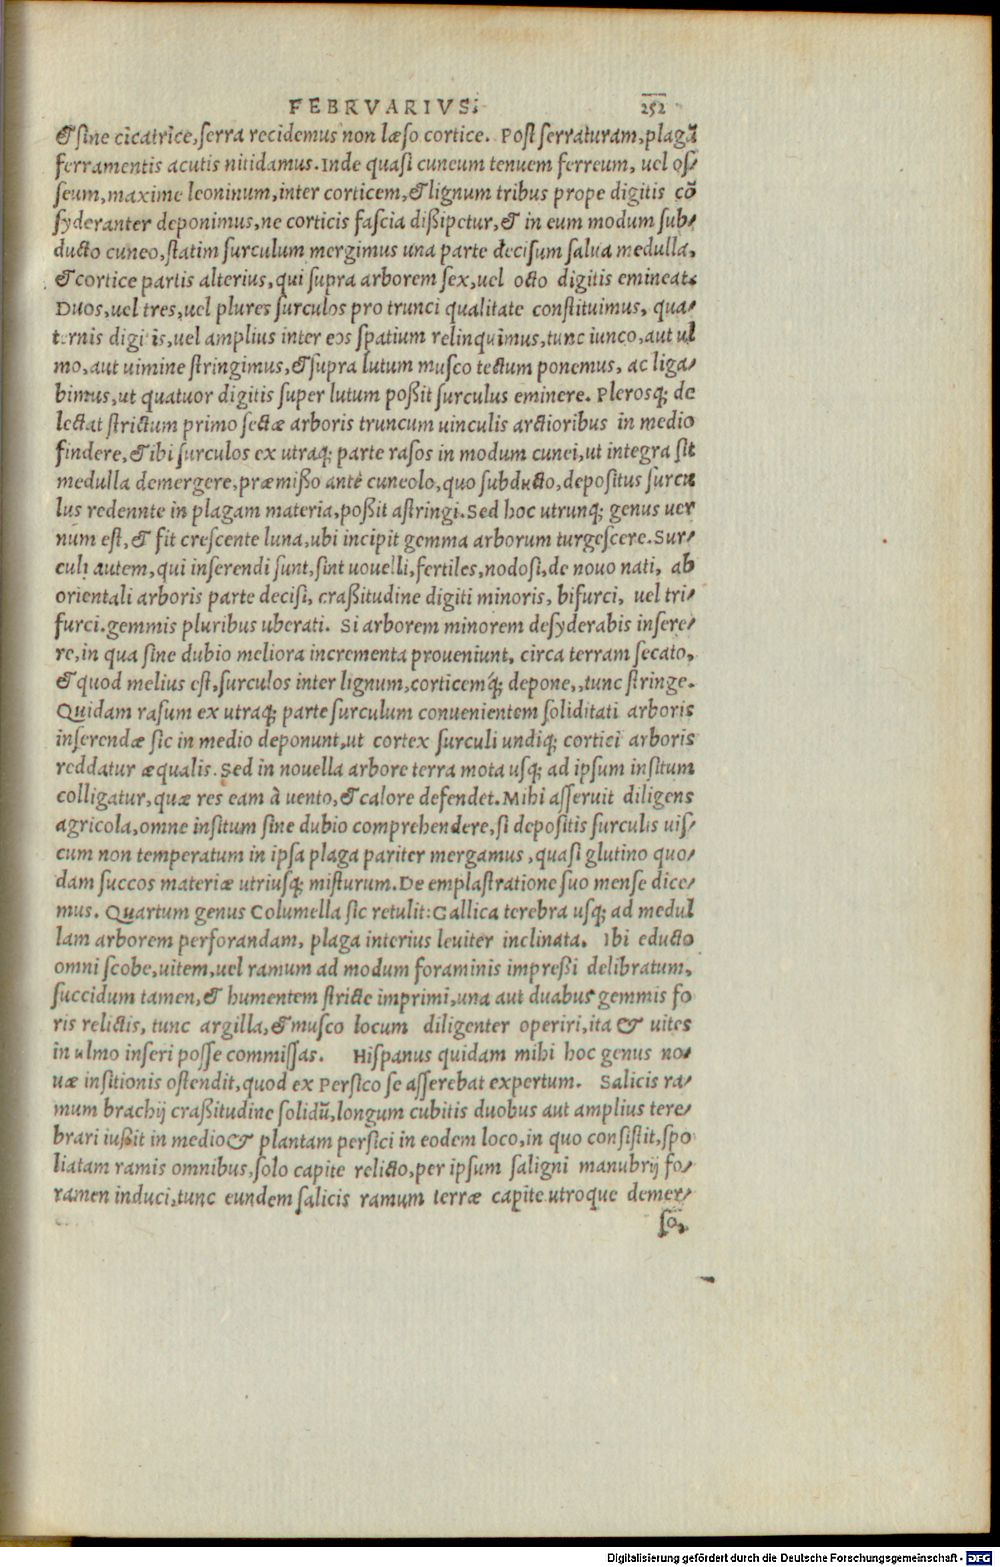 FEBRVARIVS. 252
& sine cicatrice, serra recidemus non læso cortice. Post serraturam, plagã
ferramentis acutis nitidamus. Inde quasi cuneum tenuem ferreum, uel os/
seum, maxime leoninum, inter corticem, & lignum tribus prope digitis cõ
syderanter deponimus, ne corticis fascia dißipetur, & in eum modum sub/
ducto cuneo, statim surculum mergimus una parte decisum salua medulla,
& cortice partis alterius, qui supra arborem sex, uel octo digitis emineat.
Duos, uel tres, uel plures surculos pro trunci qualitate constituimus, qua/
ternis digitis, uel amplius inter eos spatium relinquimus, tunc iunco, aut ul
mo, aut uimine stringimus, & supra lutum musco tectum ponemus, ac liga/
bimus, ut quatuor digitis super lutum poßit surculus eminere. Plerosq; de
lectat strictum primo sectæ arboris truncum uinculis arctioribus in medio
findere, & ibi surculos ex utraq; parte rasos in modum cunei, ut integra sit
medulla demergere, præmißo ante cuneolo, quo subducto, depositus surcu
lus redennte in plagam materia, poßit astringi. Sed hoc utrunq; genus uer
num est, & fit crescente luna, ubi incipit gemma arborum turgescere. Sur/
culi autem, qui inserendi sunt, sint uouelli, fertiles, nodosi, de nouo nati, ab
orientali arboris parte decisi, craßitudine digiti minoris, bifurci, uel tri/
furci. gemmis pluribus uberati. Si arborem minorem desyderabis insere/
re, in qua sine dubio meliora incrementa proueniunt, circa terram secato,
& quod melius est, surculos inter lignum, corticemq́; depone,, tunc stringe.
Quidam rasum ex utraq; parte surculum conuenientem soliditati arboris
inserendæ sic in medio deponunt, ut cortex surculi undiq; cortici arboris
reddatur æqualis. Sed in nouella arbore terra mota usq; ad ipsum insitum
colligatur, quæ res eam à uento, & calore defendet. Mihi asseruit diligens
agricola, omne insitum sine dubio comprehendere, si depositis surculis uis/
cum non temperatum in ipsa plaga pariter mergamus, quasi glutino quo/
dam succos materiæ utriusq; misturum. De emplastratione suo mense dice/
mus. Quartum genus Columella sic retulit: Gallica terebra usq; ad medul
lam arborem perforandam, plaga interius leuiter inclinata. Ibi educto
omni scobe, uitem, uel ramum ad modum foraminis impreßi delibratum,
succidum tamen, & humentem stricte imprimi, una aut duabus gemmis fo
ris relictis, tunc argilla, & musco locum diligenter operiri, ita & uites
in ulmo inseri posse commissas. Hispanus quidam mihi hoc genus no/
uæ insitionis ostendit, quod ex Persico se asserebat expertum. Salicis ra/
mum brachij craßitudine solidũ, longum cubitis duobus aut amplius tere/
brari iußit in medio & plantam persici in eodem loco, in quo consistit, spo
liatam ramis omnibus, solo capite relicto, per ipsum saligni manubrij fo/
ramen induci, tunc eundem salicis ramum terræ capite utroque demer/
so,
Digitalisierung gefördert durch die Deutsche Forschungsgemeinschaft - DFG